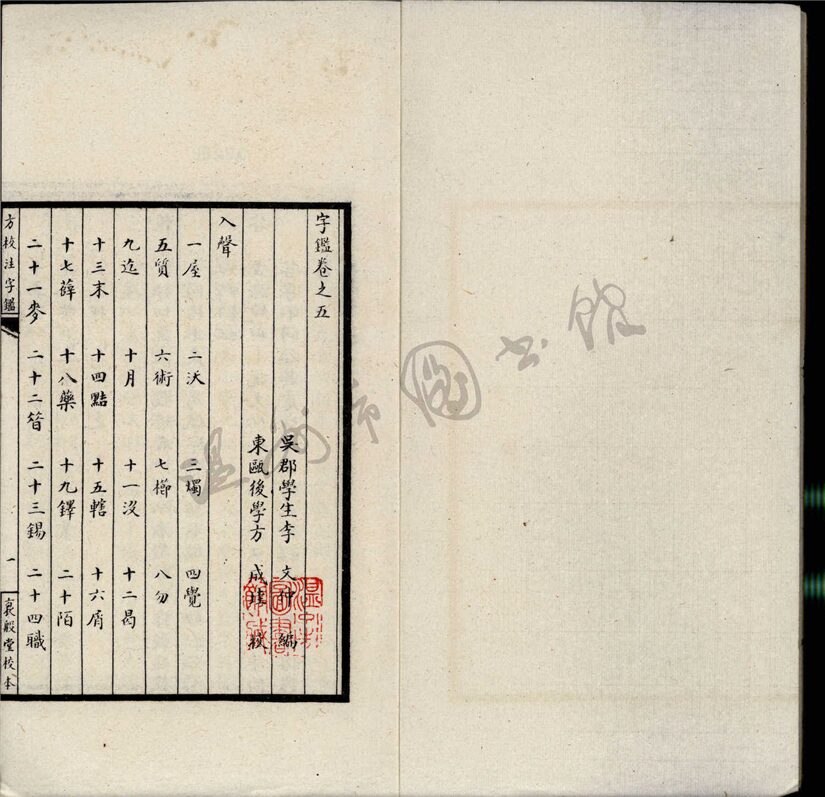 字鑑卷之五
吳郡學生李 文仲 編
東甌後學方 成珪 校
入聲
一屋 二沃 三燭 四覺
五質 六術 七櫛 八勿
九迄 十月 十一沒 十二曷
十三末 十四黠 十五轄 十六屑
十七薛 十八藥 十九鐸 二十陌
二十一麥 二十二㫺 二十三錫 二十四職
方校注字鑑 一 裒殷堂校本
溫州市圖書館藏
温州市图书馆